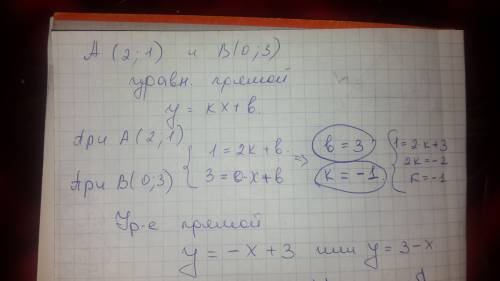 A (2; 1) и B(0; 3)
уравн. прямой
y = kx + b.
при A (2; 1) { 1 = 2k + b. => b = 3 { 1 = 2·k + 3
при B (0; 3) 3 = 0·x + b k = -1 2k = -2
k = -1
Ур-е прямой
y = -x + 3 или y = 3 - x